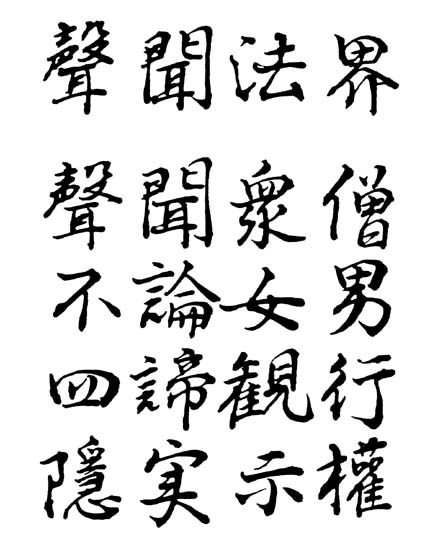 聲聞法界
聲聞衆僧
不論女男
四諦観行
隱实示權